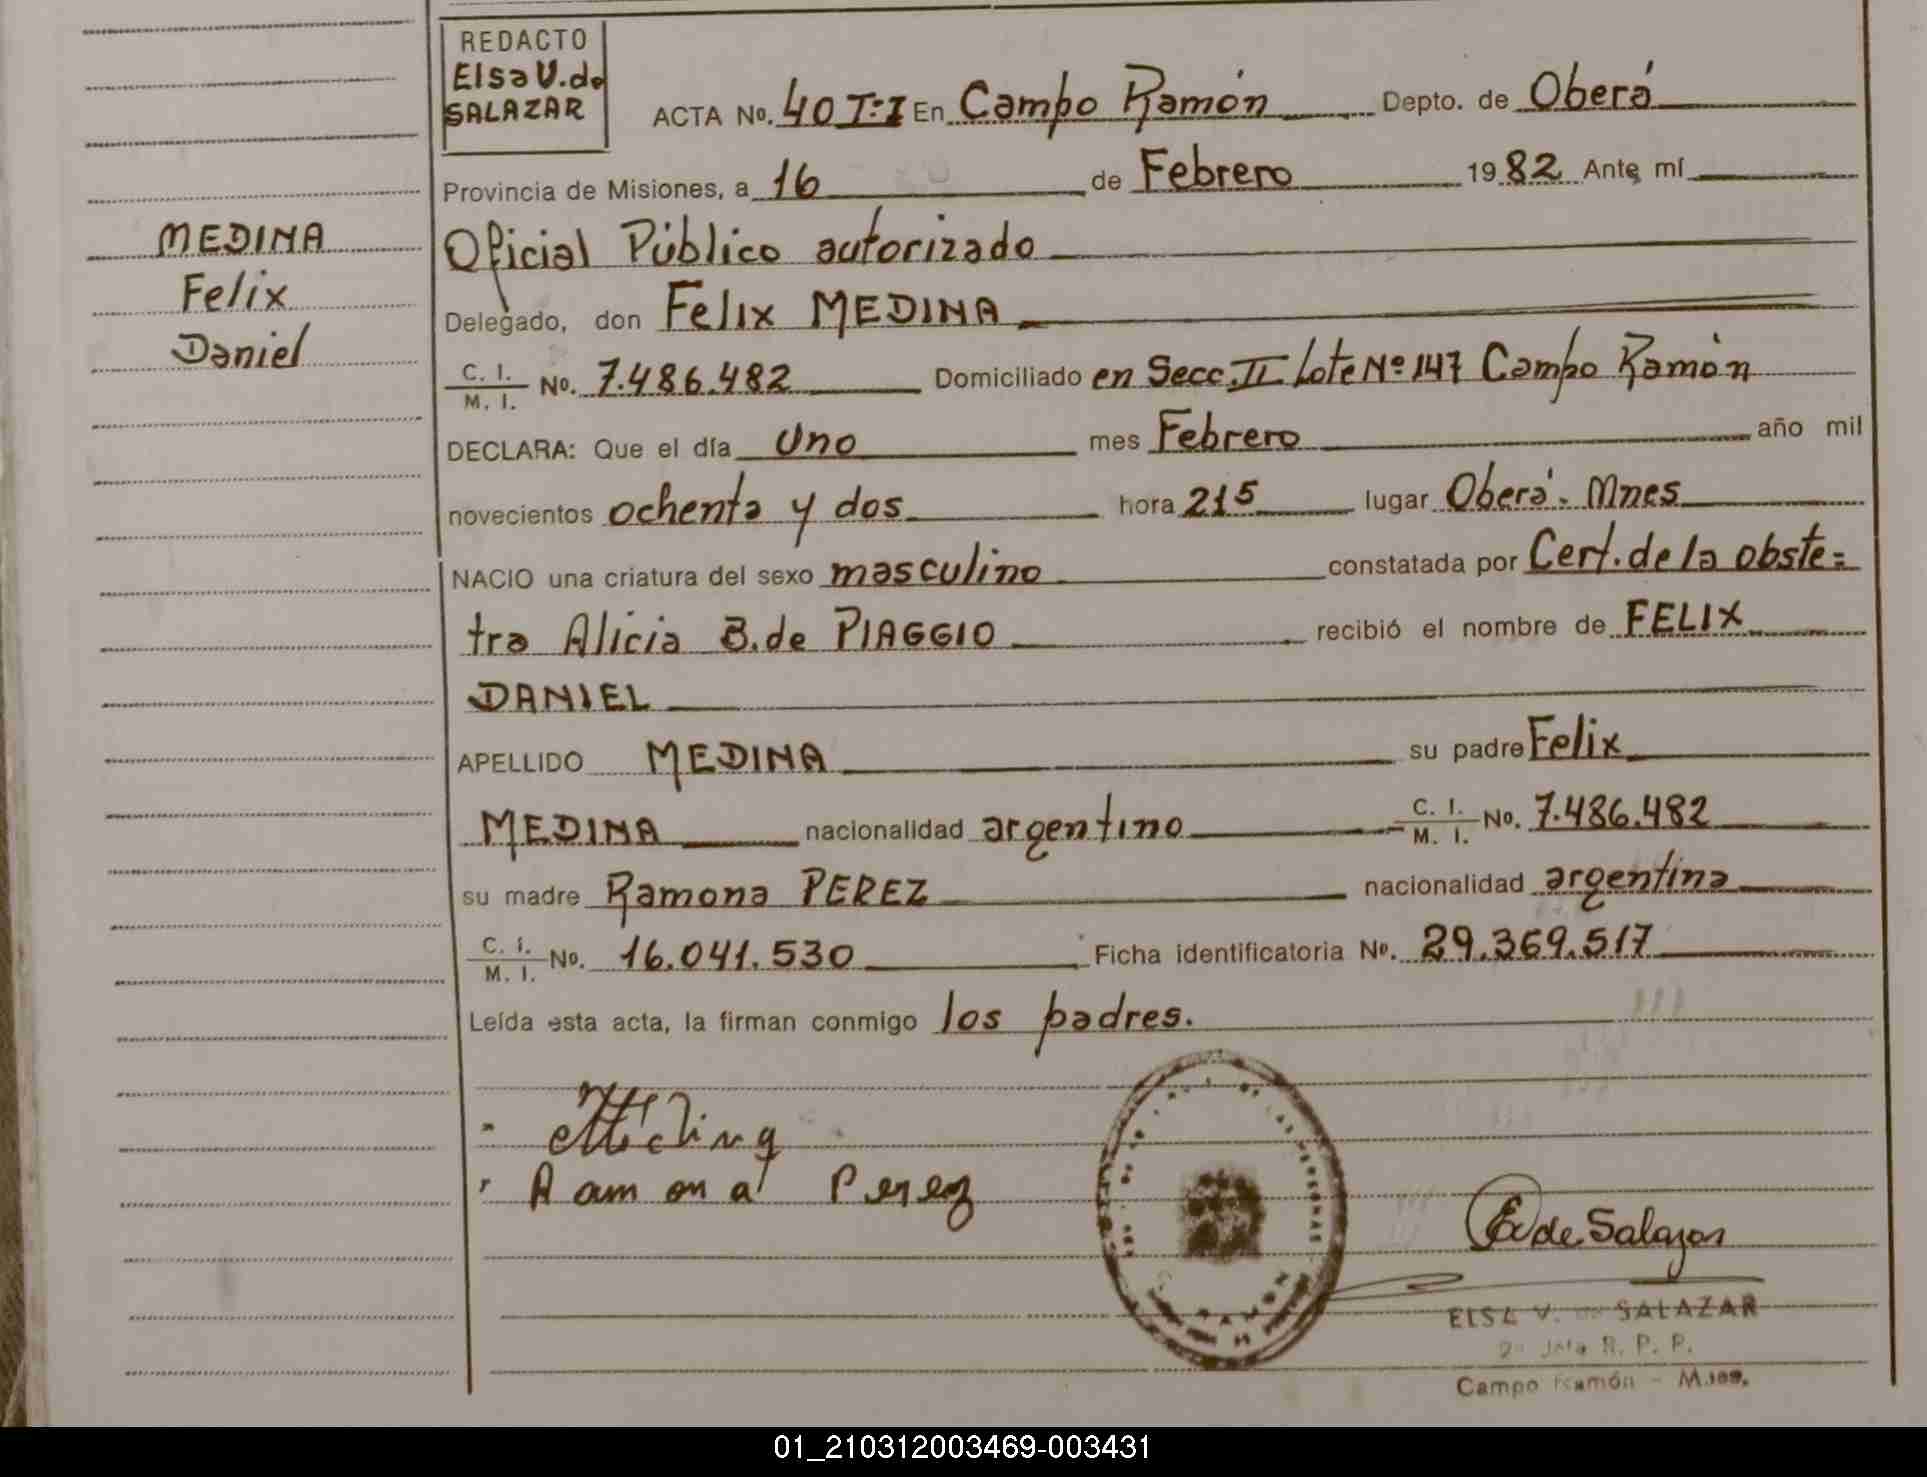 REDACTO
Elsa V. de
SALAZAR
ACTA No. 40 T:I En Campo Ramón Depto. de Oberá
Provincia de Misiones, a 16 de Febrero 1982 Ante mí
Oficial Público autorizado
Delegado, don Felix MEDINA
C. I. / M. I. No. 7.486.482 Domiciliado en Secc. II Lote Nº 147 Campo Ramón
DECLARA: Que el día uno mes Febrero año mil
novecientos ochenta y dos hora 215 lugar Oberá. Mnes
NACIO una criatura del sexo masculino constatada por Cert. de la obste=
tra Alicia B. de PIAGGIO recibió el nombre de FELIX
DANIEL
APELLIDO MEDINA su padre Felix
MEDINA nacionalidad argentino C. I. / M. I. No. 7.486.482
su madre Ramona PEREZ nacionalidad argentina
C. I. / M. I. No. 16.041.530 Ficha identificatoria No. 29.369.517
Leída esta acta, la firman conmigo los padres.
MEDINA
Felix
Daniel
Ramona Perez
E V de Salazar
ELSA V. de SALAZAR
R. P. P.
Campo Ramón - Mnes.
01_210312003469-003431